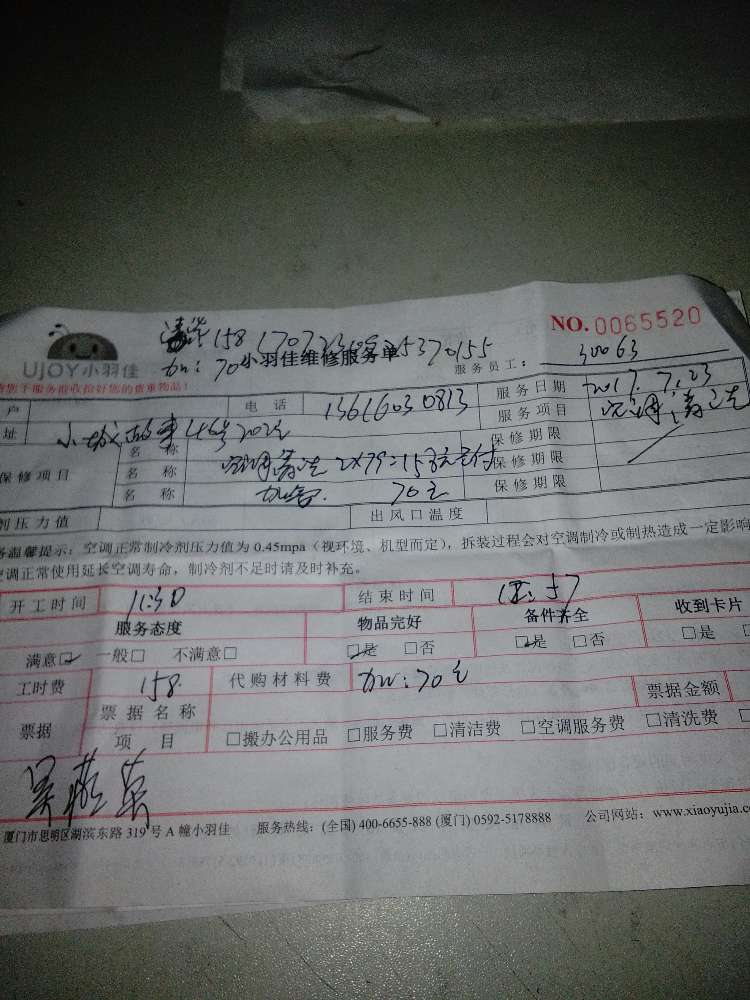 清洗158
NO.0065520
UJOY小羽佳
加:70
小羽佳维修服务单
服务员工: 30063
请您于服务前收拾好您的贵重物品!
户 电话 13616030813 服务日期 2017.7.23
服务项目 空调清洗
址 小城故事 保修期限
保修项目 名称 空调清洗 2×79=158元 保修期限
名称 70元 保修期限
剂压力值 出风口温度
温馨提示:空调正常制冷剂压力值为 0.45mpa(视环境、机型而定),拆装过程会对空调制冷或制热造成一定影响
空调正常使用延长空调寿命,制冷剂不足时请及时补充。
开工时间 11:30 结束时间
服务态度 物品完好 备件齐全 收到卡片
满意☑ 一般□ 不满意□ ☑是 □否 ☑是 □否 □是
工时费 158. 代购材料费 加:70元 票据金额
票据 票据名称
项目 □搬办公用品 □服务费 □清洁费 □空调服务费 □清洗费
厦门市思明区湖滨东路 319 号 A 幢小羽佳 服务热线:(全国) 400-6655-888 (厦门) 0592-5178888 公司网站:www.xiaoyujia